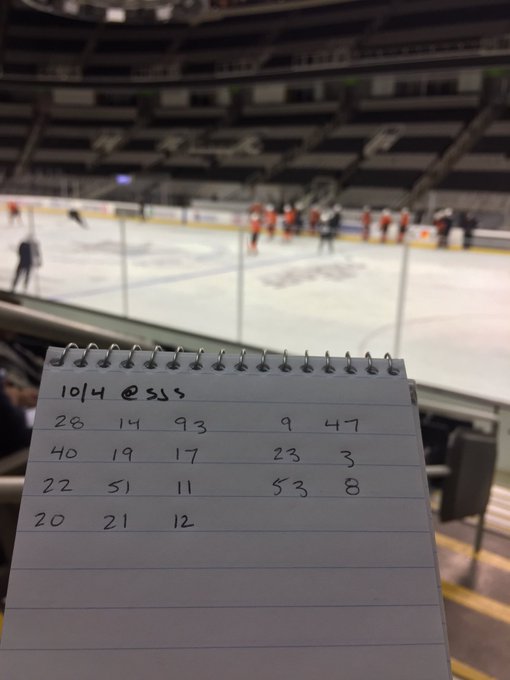 10/4 @ SJS
28 14 93 9 47
40 19 17 23 3
22 51 11 53 8
20 21 12